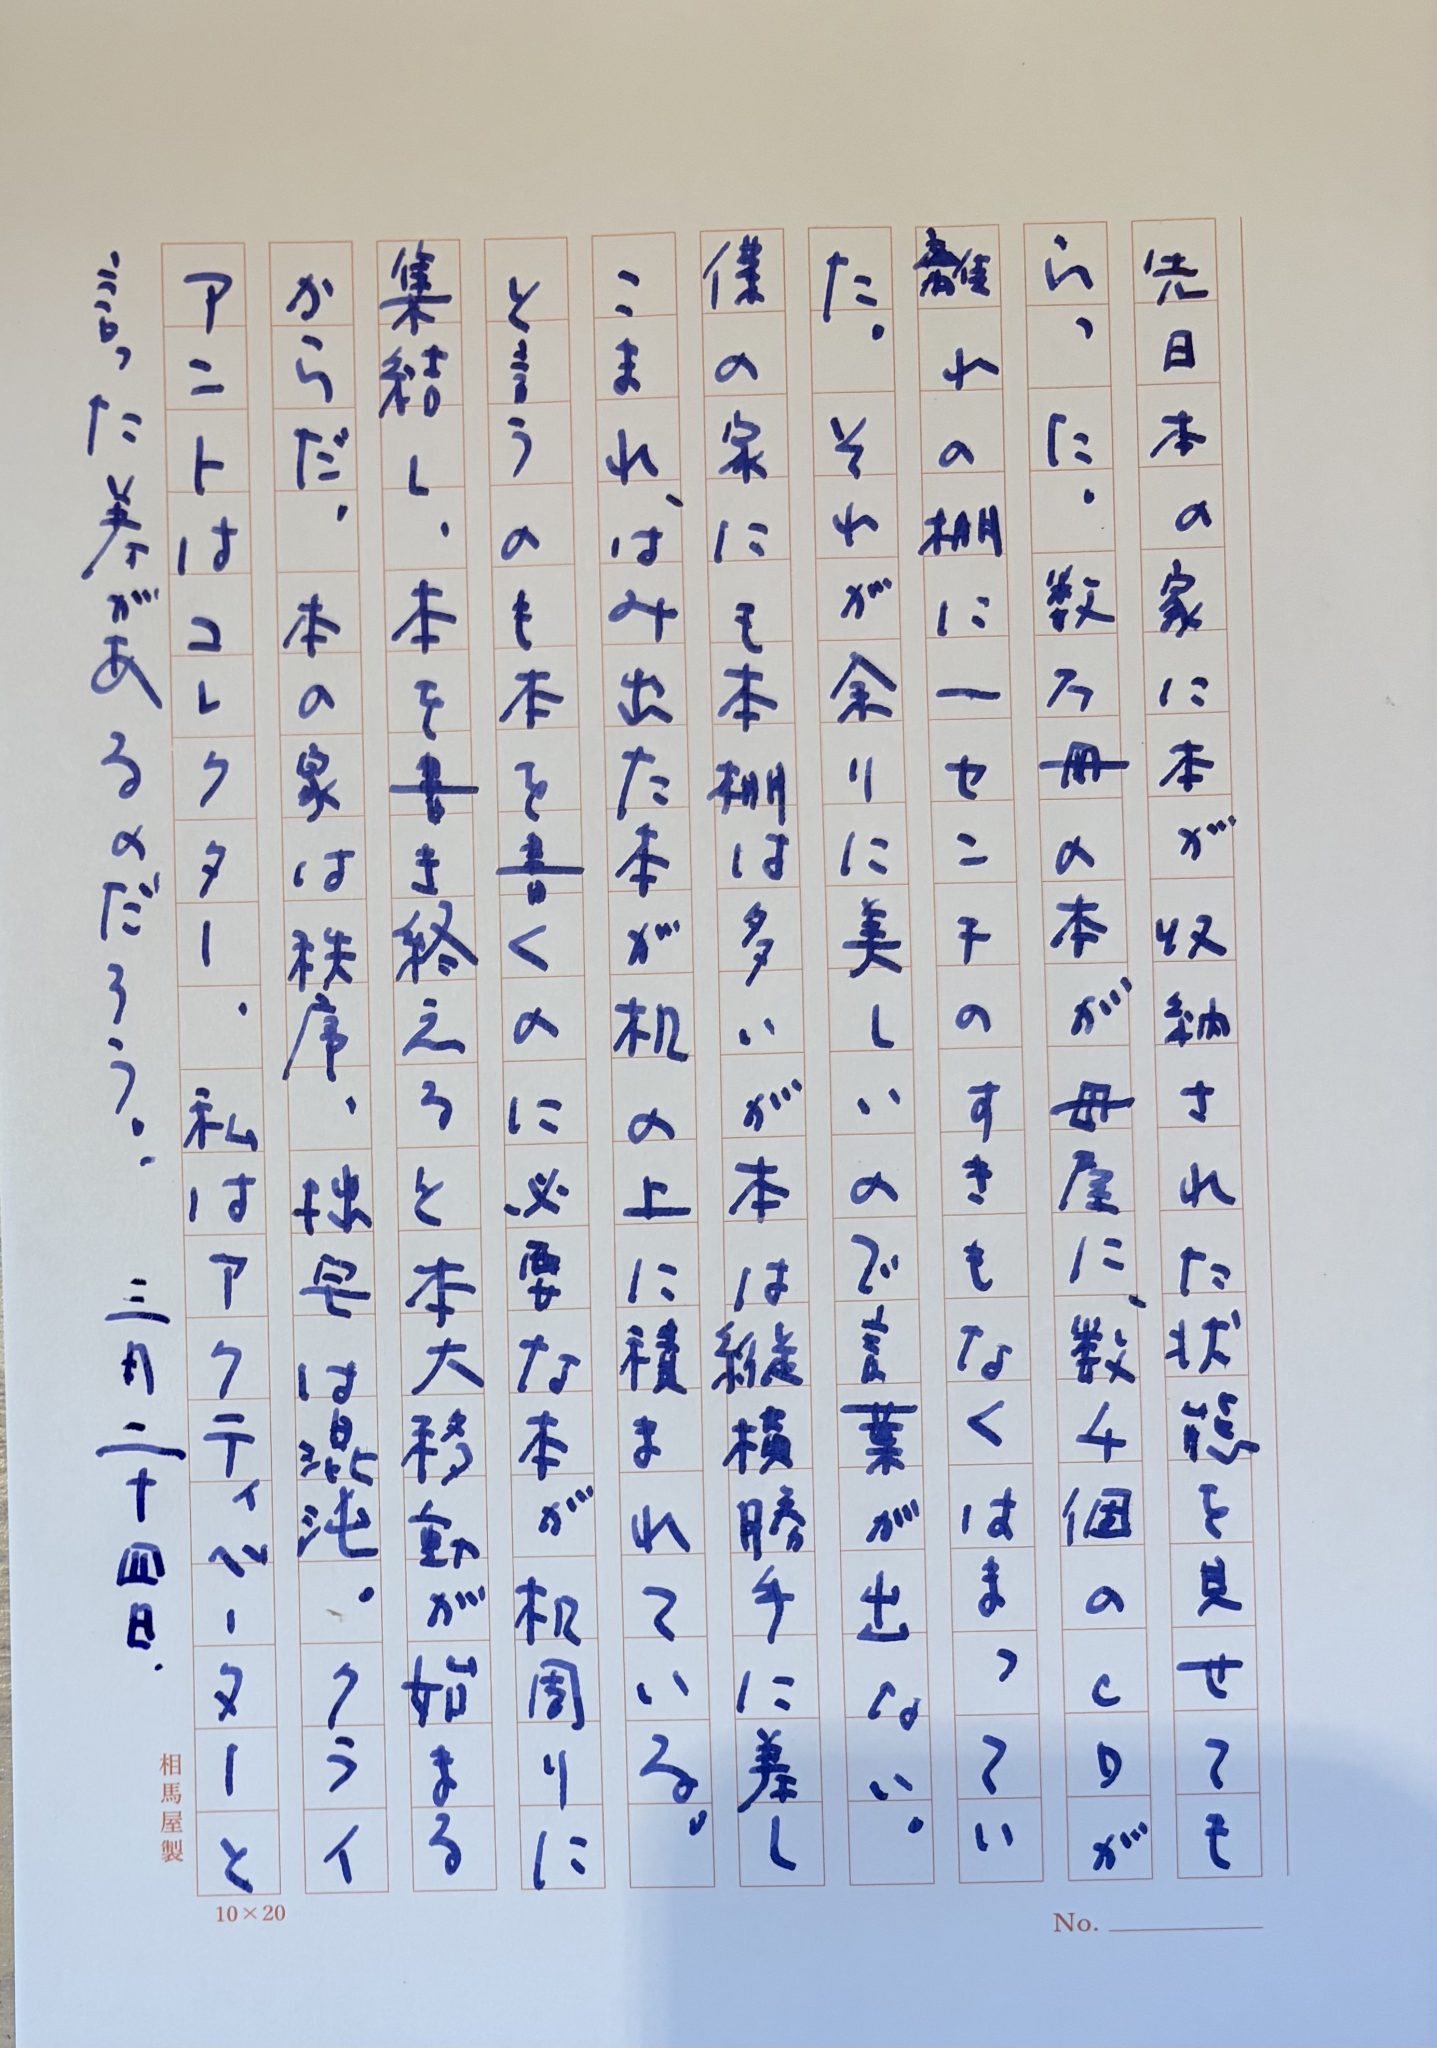 先日本の家に本が収納された状態を見せても
らった。数万冊の本が母屋に、数千個のCDが
離れの棚に一センチのすきもなくはまってい
た。それが余りに美しいので言葉が出ない。
僕の家にも本棚は多いが本は縦横勝手に差し
こまれ、はみ出た本が机の上に積まれている。
と言うのも本を書くのに必要な本が机周りに
集結し、本を書き終えると本大移動が始まる
からだ。本の家は秩序、拙宅は混沌。クライ
アントはコレクター、私はアクティベーターと
言った差があるのだろう。 三月二十四日.
相馬屋製
10×20
No.